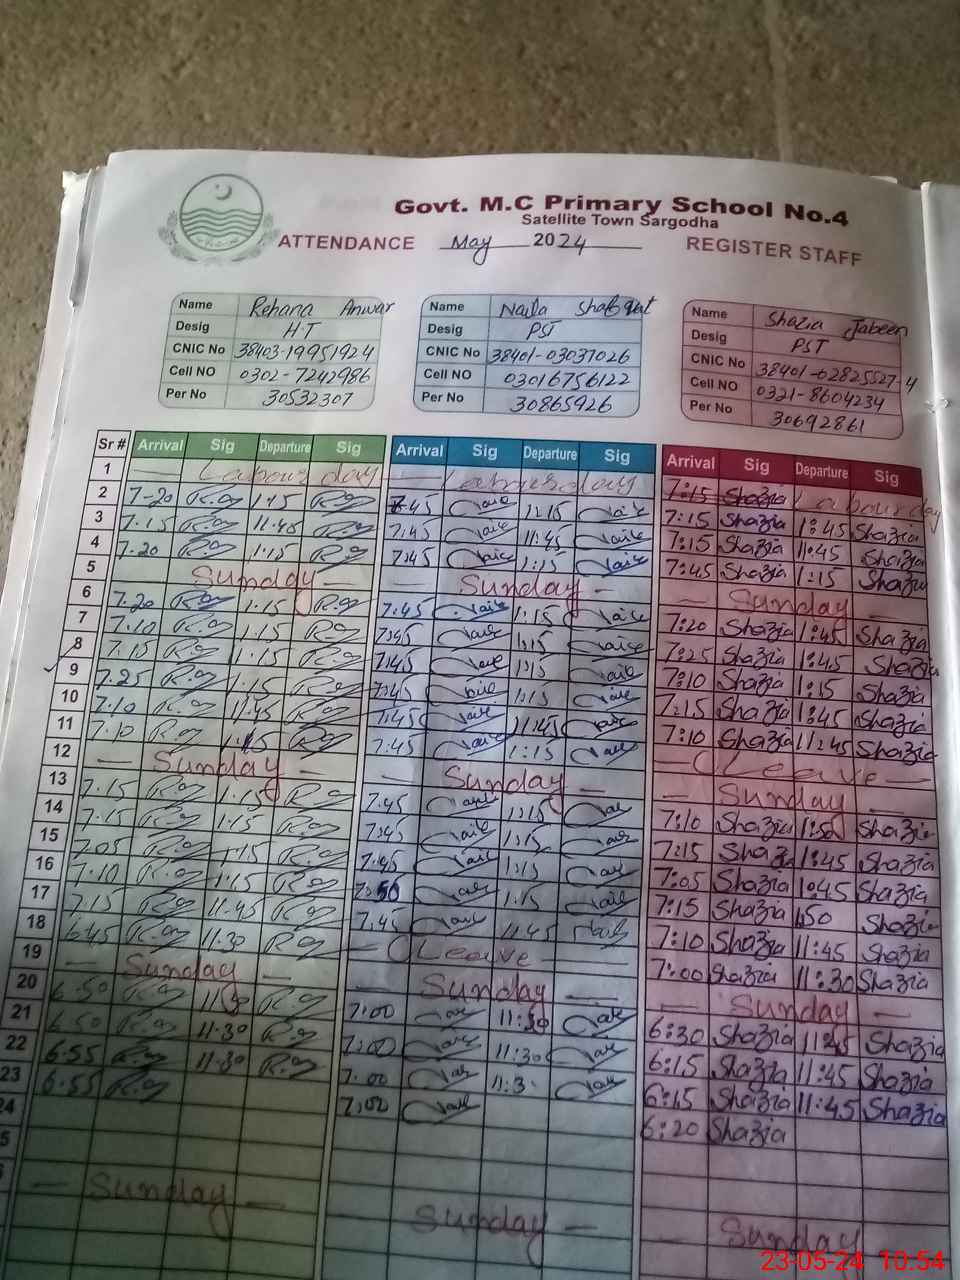 Govt. M.C Primary School No.4
Satellite Town Sargodha
ATTENDANCE May 2024 REGISTER STAFF
Name Rehana Anwar Name Naila Shafqat Name Shazia Jabeen
Desig H.T Desig PST Desig PST
CNIC No 38403-19951924 CNIC No 38401-03037026 CNIC No 38401-02825527-4
Cell NO 0302-7242986 Cell NO 03016756122 Cell NO 0321-8604234
Per No 30532307 Per No 30865926 Per No 30692861
Sr # Arrival Sig Departure Sig Arrival Sig Departure Sig Arrival Sig Departure Sig
1 — Labour day — Labour day 7:15 Shazia Labour day
2 7-20 R.a 1:15 R.a 7:45 Naila 1:15 Naila 7:15 Shazia 1:45 Shazia
3 7.15 R.a 11.45 R.a 7:45 Naila 11:45 Naila 7:15 Shazia 11:45 Shazia
4 7.20 R.a 1.15 R.a 7:45 Naila 1:15 Naila 7:45 Shazia 1:15 Shazia
5 Sunday — — Sunday — — Sunday —
6 7.20 R.a 1.15 R.a 7:45 Naila 1:15 Naila 7:20 Shazia 1:45 Shazia
7 7.10 R.a 1.15 R.a 7:45 Naila 1:15 Naila 7:25 Shazia 1:45 Shazia
8 7.15 R.a 1.15 R.a 7:45 Naila 1:15 Naila 7:10 Shazia 1:15 Shazia
9 7.25 R.a 1.15 R.a 7:45 Naila 1:15 Naila 7:15 Shazia 1:45 Shazia
10 7.10 R.a 11.45 R.a 7:45 Naila 11:45 Naila 7:10 Shazia 11:45 Shazia
11 7.10 R.a 1.15 R.a 7:45 Naila 1:15 Naila — Leave —
12 — Sunday — — Sunday — — Sunday —
13 7.15 R.a 1.15 R.a 7:45 Naila 1:15 Naila 7:10 Shazia 1:50 Shazia
14 7.15 R.a 1.15 R.a 7:45 Naila 1:15 Naila 7:15 Shazia 1:45 Shazia
15 7.05 R.a 1.15 R.a 7:45 Naila 1:15 Naila 7:05 Shazia 1:45 Shazia
16 7.10 R.a 1.15 R.a 7:50 Naila 1:15 Naila 7:15 Shazia 1:50 Shazia
17 7.15 R.a 11.45 R.a 7:45 Naila 11:45 Naila 7:10 Shazia 11:45 Shazia
18 6.45 R.a 11.30 R.a — Leave — 7:00 Shazia 11:30 Shazia
19 — Sunday — — Sunday — — Sunday —
20 6.50 R.a 11.30 R.a 7:00 Naila 11:30 Naila 6:30 Shazia 11:45 Shazia
21 6.50 R.a 11.30 R.a 7:00 Naila 11:30 Naila 6:15 Shazia 11:45 Shazia
22 6.55 R.a 11.30 R.a 7:00 Naila 11:3 Naila 6:15 Shazia 11:45 Shazia
23 6.55 R.a 7:00 Naila 6:20 Shazia
24
5
— Sunday — — Sunday — — Sunday
23-05-24 10:54